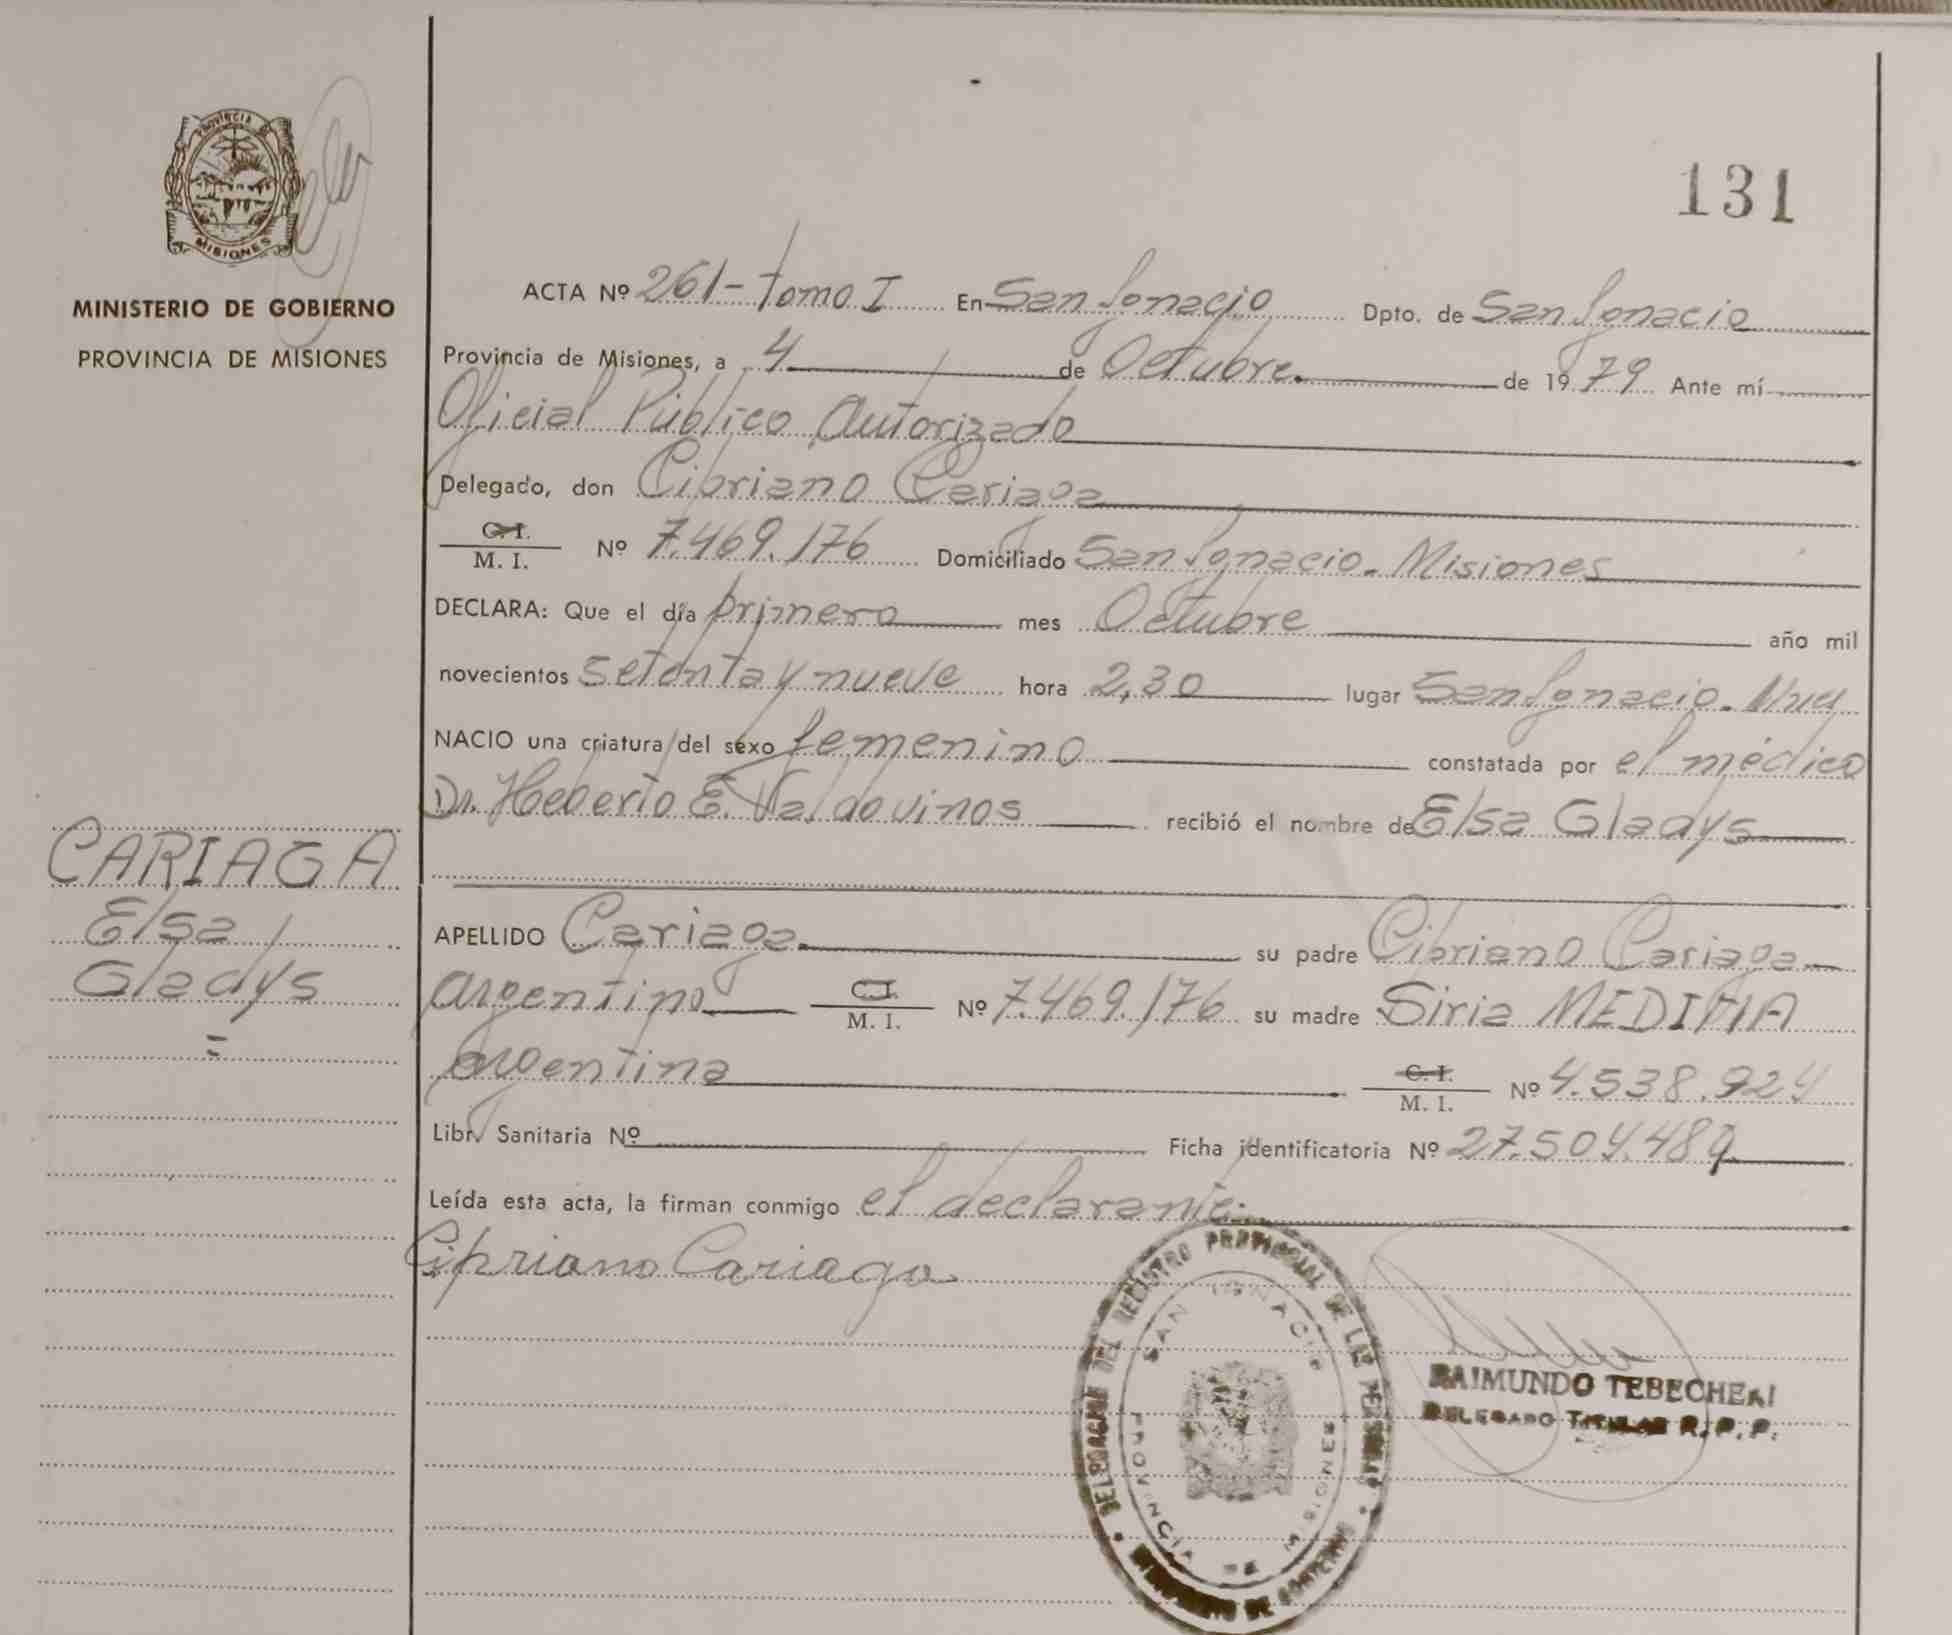 PROVINCIA DE
MISIONES
MINISTERIO DE GOBIERNO
PROVINCIA DE MISIONES
CARIAGA
Elsa
Gladys
=
131
ACTA Nº 261- Tomo I En San Ignacio Dpto. de San Ignacio
Provincia de Misiones, a 4 de Octubre. de 1979 Ante mí
Oficial Público Autorizado
Delegado, don Cipriano Cariaga
C. I. / M. I. Nº 7.469.176 Domiciliado San Ignacio. Misiones
DECLARA: Que el día primero mes Octubre año mil
novecientos setenta y nueve hora 2,30 lugar San Ignacio.
NACIO una criatura del sexo femenino constatada por el médico
Dr. Heberto E. Valdovinos recibió el nombre de Elsa Gladys
APELLIDO Cariaga. su padre Cipriano Cariaga
argentino C. I. / M. I. Nº 7.469.176 su madre Siria MEDINA
argentina C. I. / M. I. Nº 4.538.924
Libr. Sanitaria Nº Ficha identificatoria Nº 27.504.489
Leída esta acta, la firman conmigo el declarante.
Cipriano Cariaga
DELEGACION DEL REGISTRO PROVINCIAL DE LAS PERSONAS
SAN IGNACIO
PROVINCIA DE MISIONES
MINISTERIO DE GOBIERNO
RAIMUNDO
DELEGADO TITULAR R. P. P.